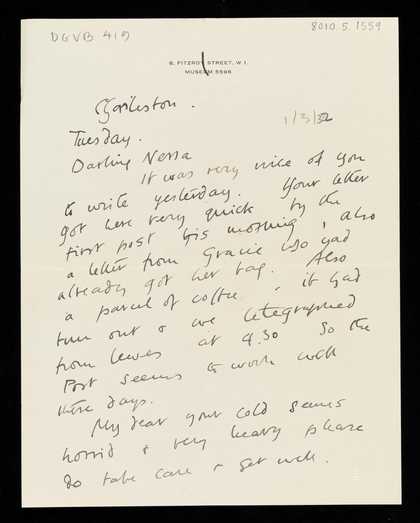 DGVB 419
8010.5.1559
8, FITZROY STREET, W.1.
MUSEUM 5596
Charleston.
1/3/32
Tuesday.
Darling Nessa
It was very nice of you
to write yesterday. Your letter
got here very quick by the
first post this morning, also
a letter from Gracie who had
already got her bag. Also
a parcel of coffee, it had
run out & we telegraphed
from Lewes at 4.30 So the
Post seems to work well
these days.
My dear your cold seems
horrid & very heavy please
do take care & get well.